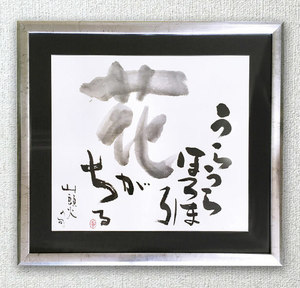 うらうら
ほろほろ
花が
ちる
山頭火